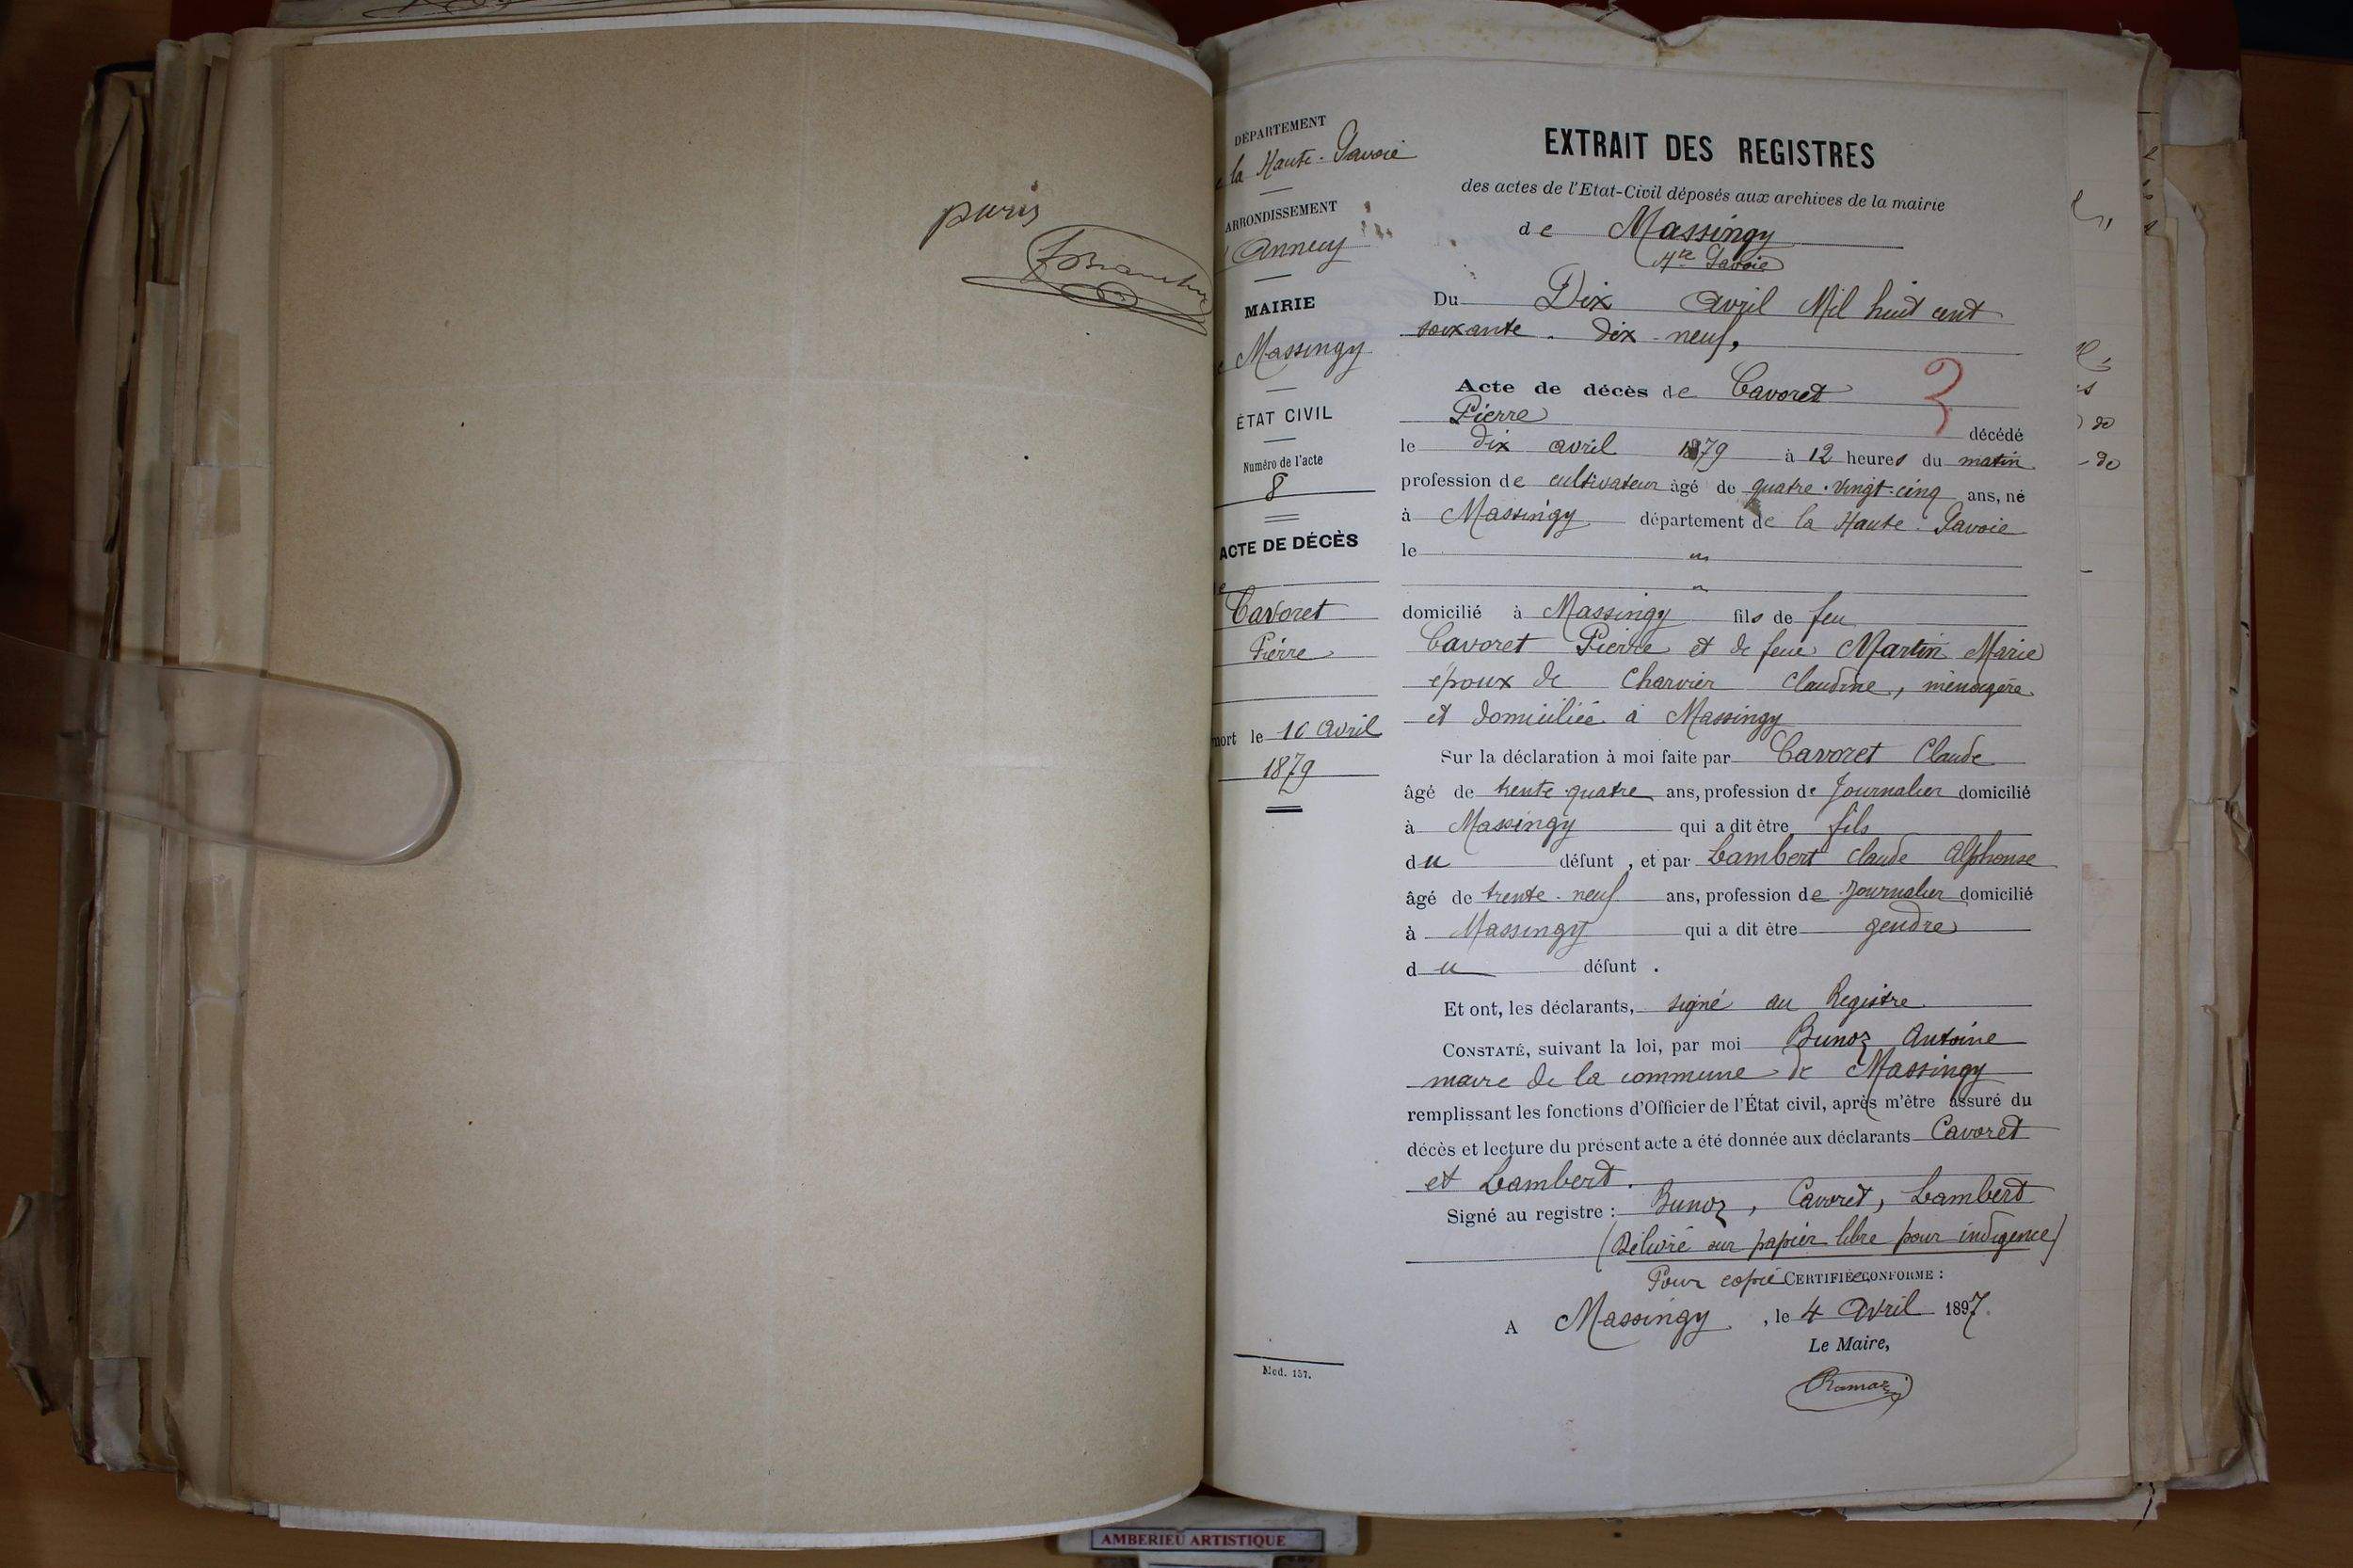 paris
DÉPARTEMENT
la Haute-Savoie
ARRONDISSEMENT
Annecy
MAIRIE
Massingy
ÉTAT CIVIL
Numéro de l'acte
8
ACTE DE DÉCÈS
Cavoret
Pierre
mort le 10 Avril
1879
Mod. 157.
EXTRAIT DES REGISTRES
des actes de l'Etat-Civil déposés aux archives de la mairie
de Massingy
Hte Savoie
Du Dix Avril Mil huit cent
soixante-dix-neuf,
3
Acte de décès de Cavoret
Pierre décédé
le dix avril 1879 à 12 heures du matin
profession de cultivateur âgé de quatre-vingt-cinq ans, né
à Massingy département de la Haute-Savoie
le "
"
domicilié à Massingy fils de feu
Cavoret Pierre et de feue Martin Marie
époux de Charvier Claudine, ménagère
et domiciliée à Massingy
Sur la déclaration à moi faite par Cavoret Claude
âgé de trente-quatre ans, profession de Journalier domicilié
à Massingy qui a dit être fils
du défunt, et par Lambert Claude Alphonse
âgé de trente-neuf ans, profession de Journalier domicilié
à Massingy qui a dit être gendre
du défunt.
Et ont, les déclarants, signé au Registre
CONSTATÉ, suivant la loi, par moi Bunoz Antoine
maire de la commune de Massingy
remplissant les fonctions d'Officier de l'État civil, après m'être assuré du
décès et lecture du présent acte a été donnée aux déclarants Cavoret
et Lambert.
Signé au registre : Bunoz, Cavoret, Lambert
(Délivré sur papier libre pour indigence)
Pour copie CERTIFIÉE CONFORME :
A Massingy, le 4 Avril 1897.
Le Maire,
AMBERIEU ARTISTIQUE